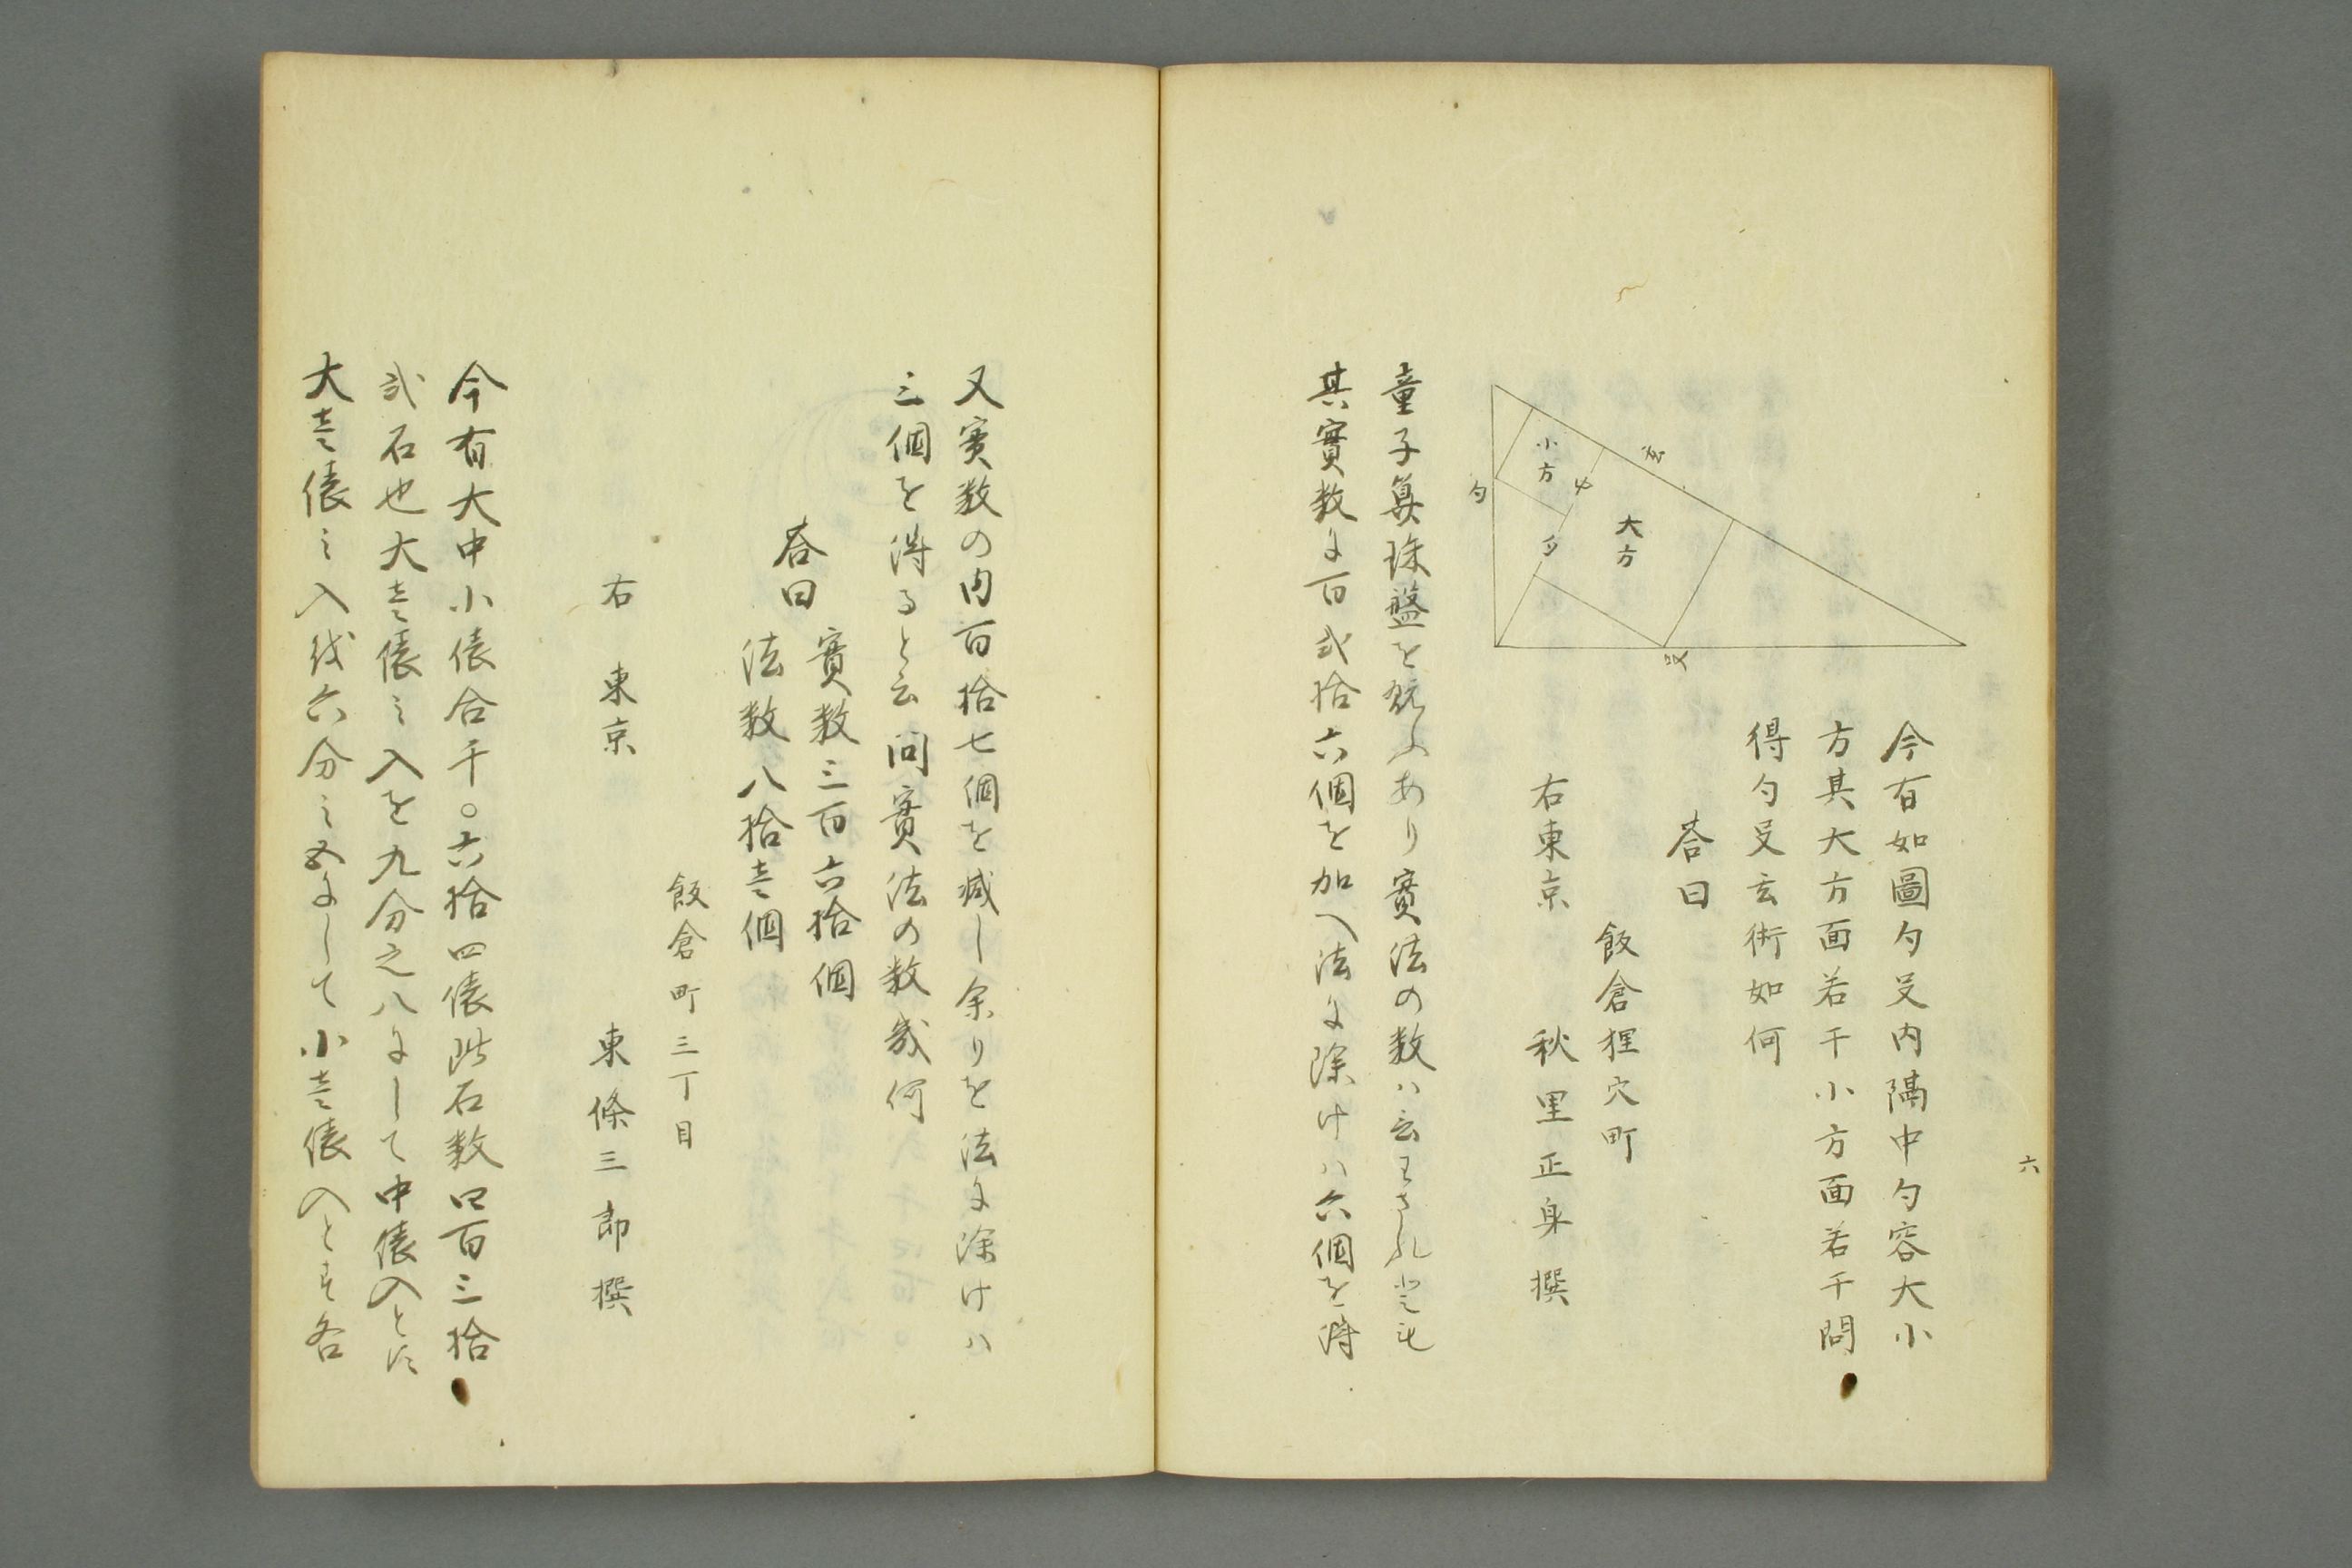 六
小方
大方
中
勺
勺
玄
今有如圖勺㕛内隔中勺容大小
方其大方面若干小方面若干問
得勺㕛玄術如何
答曰
飯倉狸穴町
右東京 秋里正身撰
童子算珠盤を翫ふあり實法の数ハ云わされ𪜈
其實数に百弐拾六個を加へ法に除けハ六個を得
又実数の内百拾七個を減し余りを法に除けハ
三個を得ると云問實法の数幾何
答曰 實数三百六拾個
法数八拾壱個
飯倉町三丁目
右 東京 東條三郎撰
今有大中小俵合千〇六拾四俵此石数四百三拾
弐石也大壱俵之入を九分之八にして中俵入と
大壱俵之入 六分之五にして小壱俵入と 各